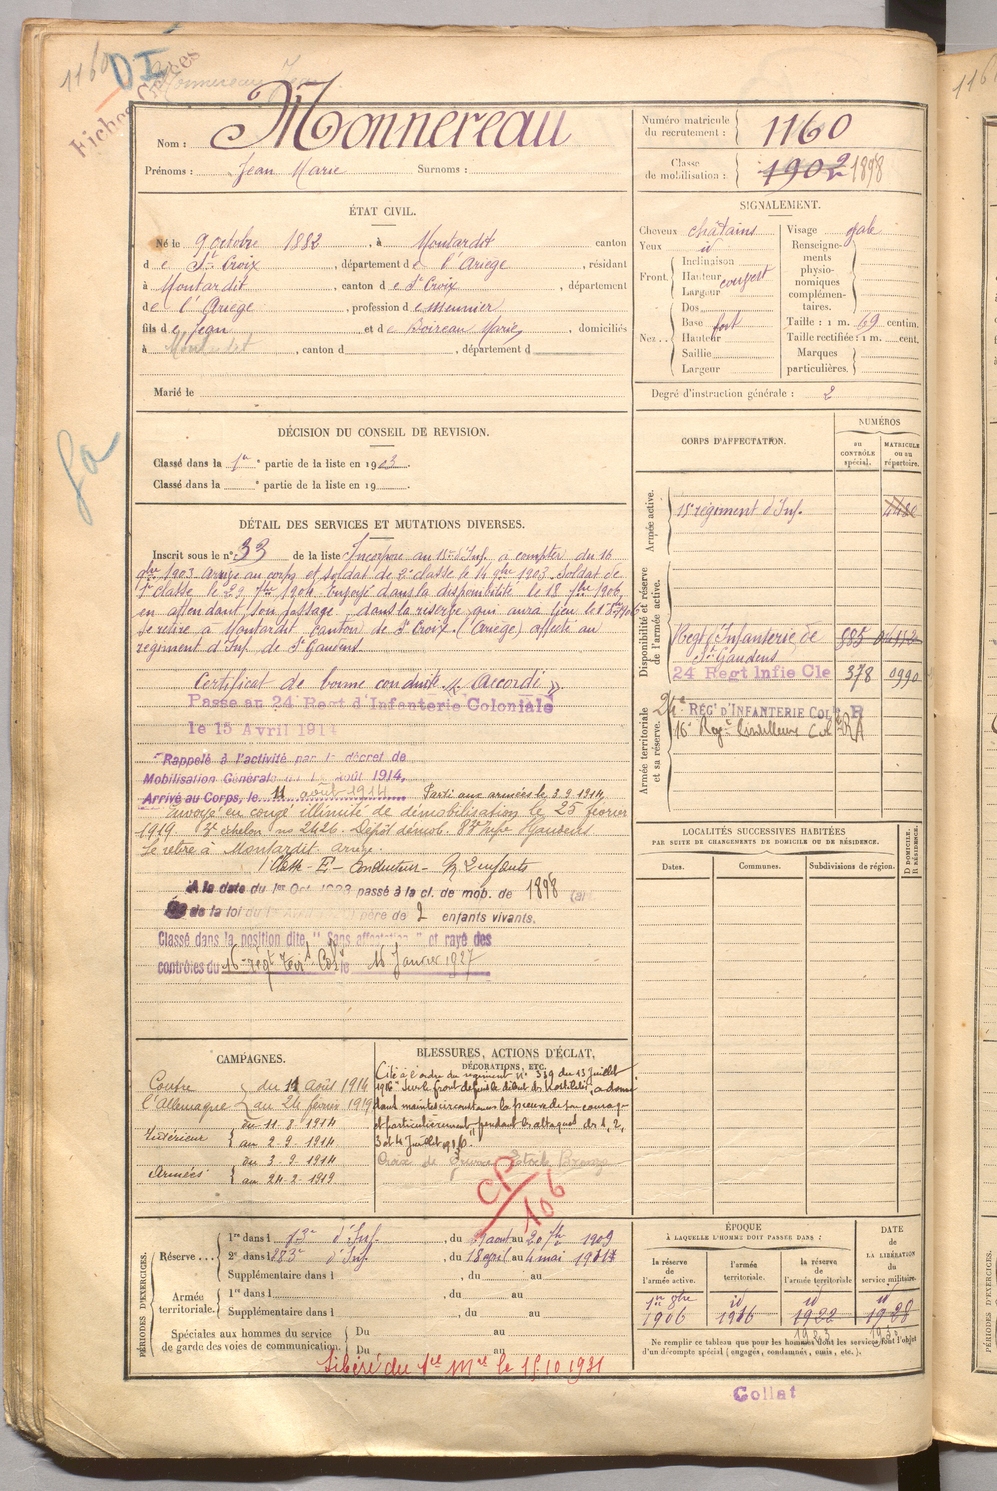 1160
DI
Fiches
Nom : Monnereau
Prénoms : Jean Marie Surnoms :
Numéro matricule du recrutement : 1160
Classe de mobilisation : 1902 1898
ÉTAT CIVIL.
Né le 9 octobre 1882, à Montardit canton
de Ste Croix, département de l'Ariège, résidant
à Montardit, canton de Ste Croix, département
de l'Ariège, profession de meunier
fils de Jean et de Boireau Marie, domiciliés
à Montardit, canton d, département d
Marié le
SIGNALEMENT.
Cheveux châtains
Yeux id
Front : Inclinaison
Hauteur
Largeur
couvert
Nez : Dos
Base fort
Hauteur
Saillie
Largeur
Visage ovale
Renseignements physionomiques complémentaires.
Taille : 1 m. 69 centim.
Taille rectifiée : 1 m. cent.
Marques particulières.
Degré d'instruction générale : 2
DÉCISION DU CONSEIL DE REVISION.
Classé dans la 1re partie de la liste en 1903.
Classé dans la partie de la liste en 19
DÉTAIL DES SERVICES ET MUTATIONS DIVERSES.
Inscrit sous le n° 33 de la liste Incorporé au 15e d'Inf. à compter du 16
9bre 1903 arrivé au corps et soldat de 2e classe le 14 9bre 1903. Soldat de
1re classe le 29 7bre 1904. Envoyé dans la disponibilité le 18 7bre 1906,
en attendant son passage dans la réserve qui aura lieu le 1er
Se retire à Montardit canton de Ste Croix (Ariège) affecté au
régiment d'Inf. de St Gaudens
Certificat de bonne conduite « Accordé »
Passé au 24 Regt d'Infanterie Coloniale
le 15 Avril 1914
Rappelé à l'activité par le décret de
Mobilisation Générale du 1er août 1914,
Arrivé au Corps, le 11 août 1914 Parti aux armées le 3.9.1914
Envoyé en congé illimité de démobilisation le 25 février
1919 3e échelon no 2426. Dépôt démob. St Gaudens
Se retire à Montardit ariège.
Classe E - Conducteur - 2 enfants
A la date du 1er Oct. 1923 passé à la cl. de mob. de 1898 (art
de la loi du père de 2 enfants vivants.
Classé dans la position dite "Sans affectation" et rayé des
contrôles du 16 régt Col le 16 Janvier 1927
CORPS D'AFFECTATION.
NUMÉROS
au CONTRÔLE spécial.
MATRICULE ou au répertoire.
Armée active.
15e régiment d'Inf.
Disponibilité et réserve de l'armée active.
Regt d'Infanterie de St Gaudens 885
24 Regt Infie Cle 378 0990
Armée territoriale et sa réserve.
24e REGt D'INFANTERIE COL
16e Regt Col
LOCALITÉS SUCCESSIVES HABITÉES
PAR SUITE DE CHANGEMENTS DE DOMICILE OU DE RÉSIDENCE.
Dates.
Communes.
Subdivisions de région.
D DOMICILE.
R RÉSIDENCE.
CAMPAGNES.
Contre l'Allemagne du 11 août 1914
au 24 février 1919
Intérieur du 11.8.1914
au 2.9.1914
Armées du 3.9.1914
au 24.2.1919
BLESSURES, ACTIONS D'ÉCLAT,
DÉCORATIONS, ETC.
Cité à l'ordre du régiment n° 339 du 13 juillet
1916 "Sur le front depuis le début des hostilités, a donné
dans maintes circonstances la preuve de son courage
et particulièrement pendant les attaques des 1, 2,
3 et 4 juillet 1916."
Croix de Guerre Etoile Bronze
CP 106
PÉRIODES D'EXERCICES.
Réserve
1re dans l d'Inf., du août au 20 7bre 1909
2e dans l 283e d'Inf., du 18 avril au 4 mai 1911
Supplémentaire dans l, du au
Armée territoriale.
1re dans l, du au
Supplémentaire dans l, du au
Spéciales aux hommes du service de garde des voies de communication.
Du au
Du au
Libéré du Sce Mre le 15 10 1931
ÉPOQUE
À LAQUELLE L'HOMME DOIT PASSER DANS :
la réserve de l'armée active.
l'armée territoriale.
la réserve de l'armée territoriale
DATE DE LA LIBÉRATION du service militaire.
1er 8bre 1906
id 1916
id 1922
id 1928
Ne remplir ce tableau que pour les hommes dont les services font l'objet
d'un décompte spécial (engagés, condamnés, omis, etc.).
Collat